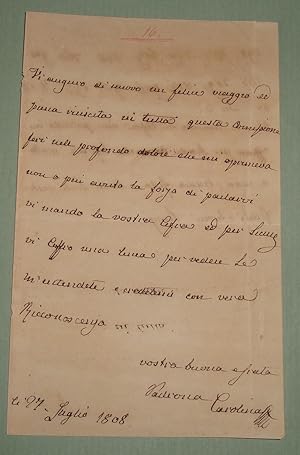 16.
Vi auguro di nuovo un felice viaggio ed
piena riuscita in tutta questa Comissione
jeri nell profondo dolore che mi opprimeva
non o più avuto la forza di parlarvi
vi mando la vostra Cifra ed per
vi una per vedere se
m'intendete e credetemi con vera
Riconoscenza
vostra buona e grata
Padrona Carolina
li 27 Luglio 1808